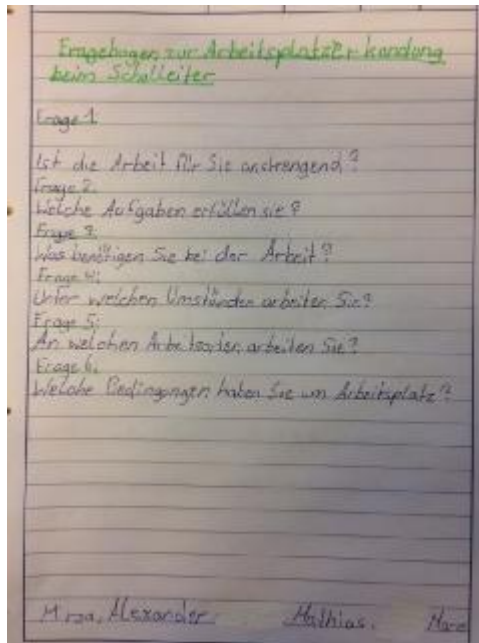 Fragebogen zur Arbeitsplatzerkundung
beim Schulleiter
Frage 1
Ist die Arbeit für Sie anstrengend?
Frage 2:
Welche Aufgaben erfüllen sie?
Frage 3:
Was benötigen Sie bei der Arbeit?
Frage 4:
Unter welchen Umständen arbeiten Sie?
Frage 5:
An welchen Arbeitsorten arbeiten Sie?
Frage 6:
Welche Bedingungen haben Sie um Arbeitsplatz?
Alexander Mathias.